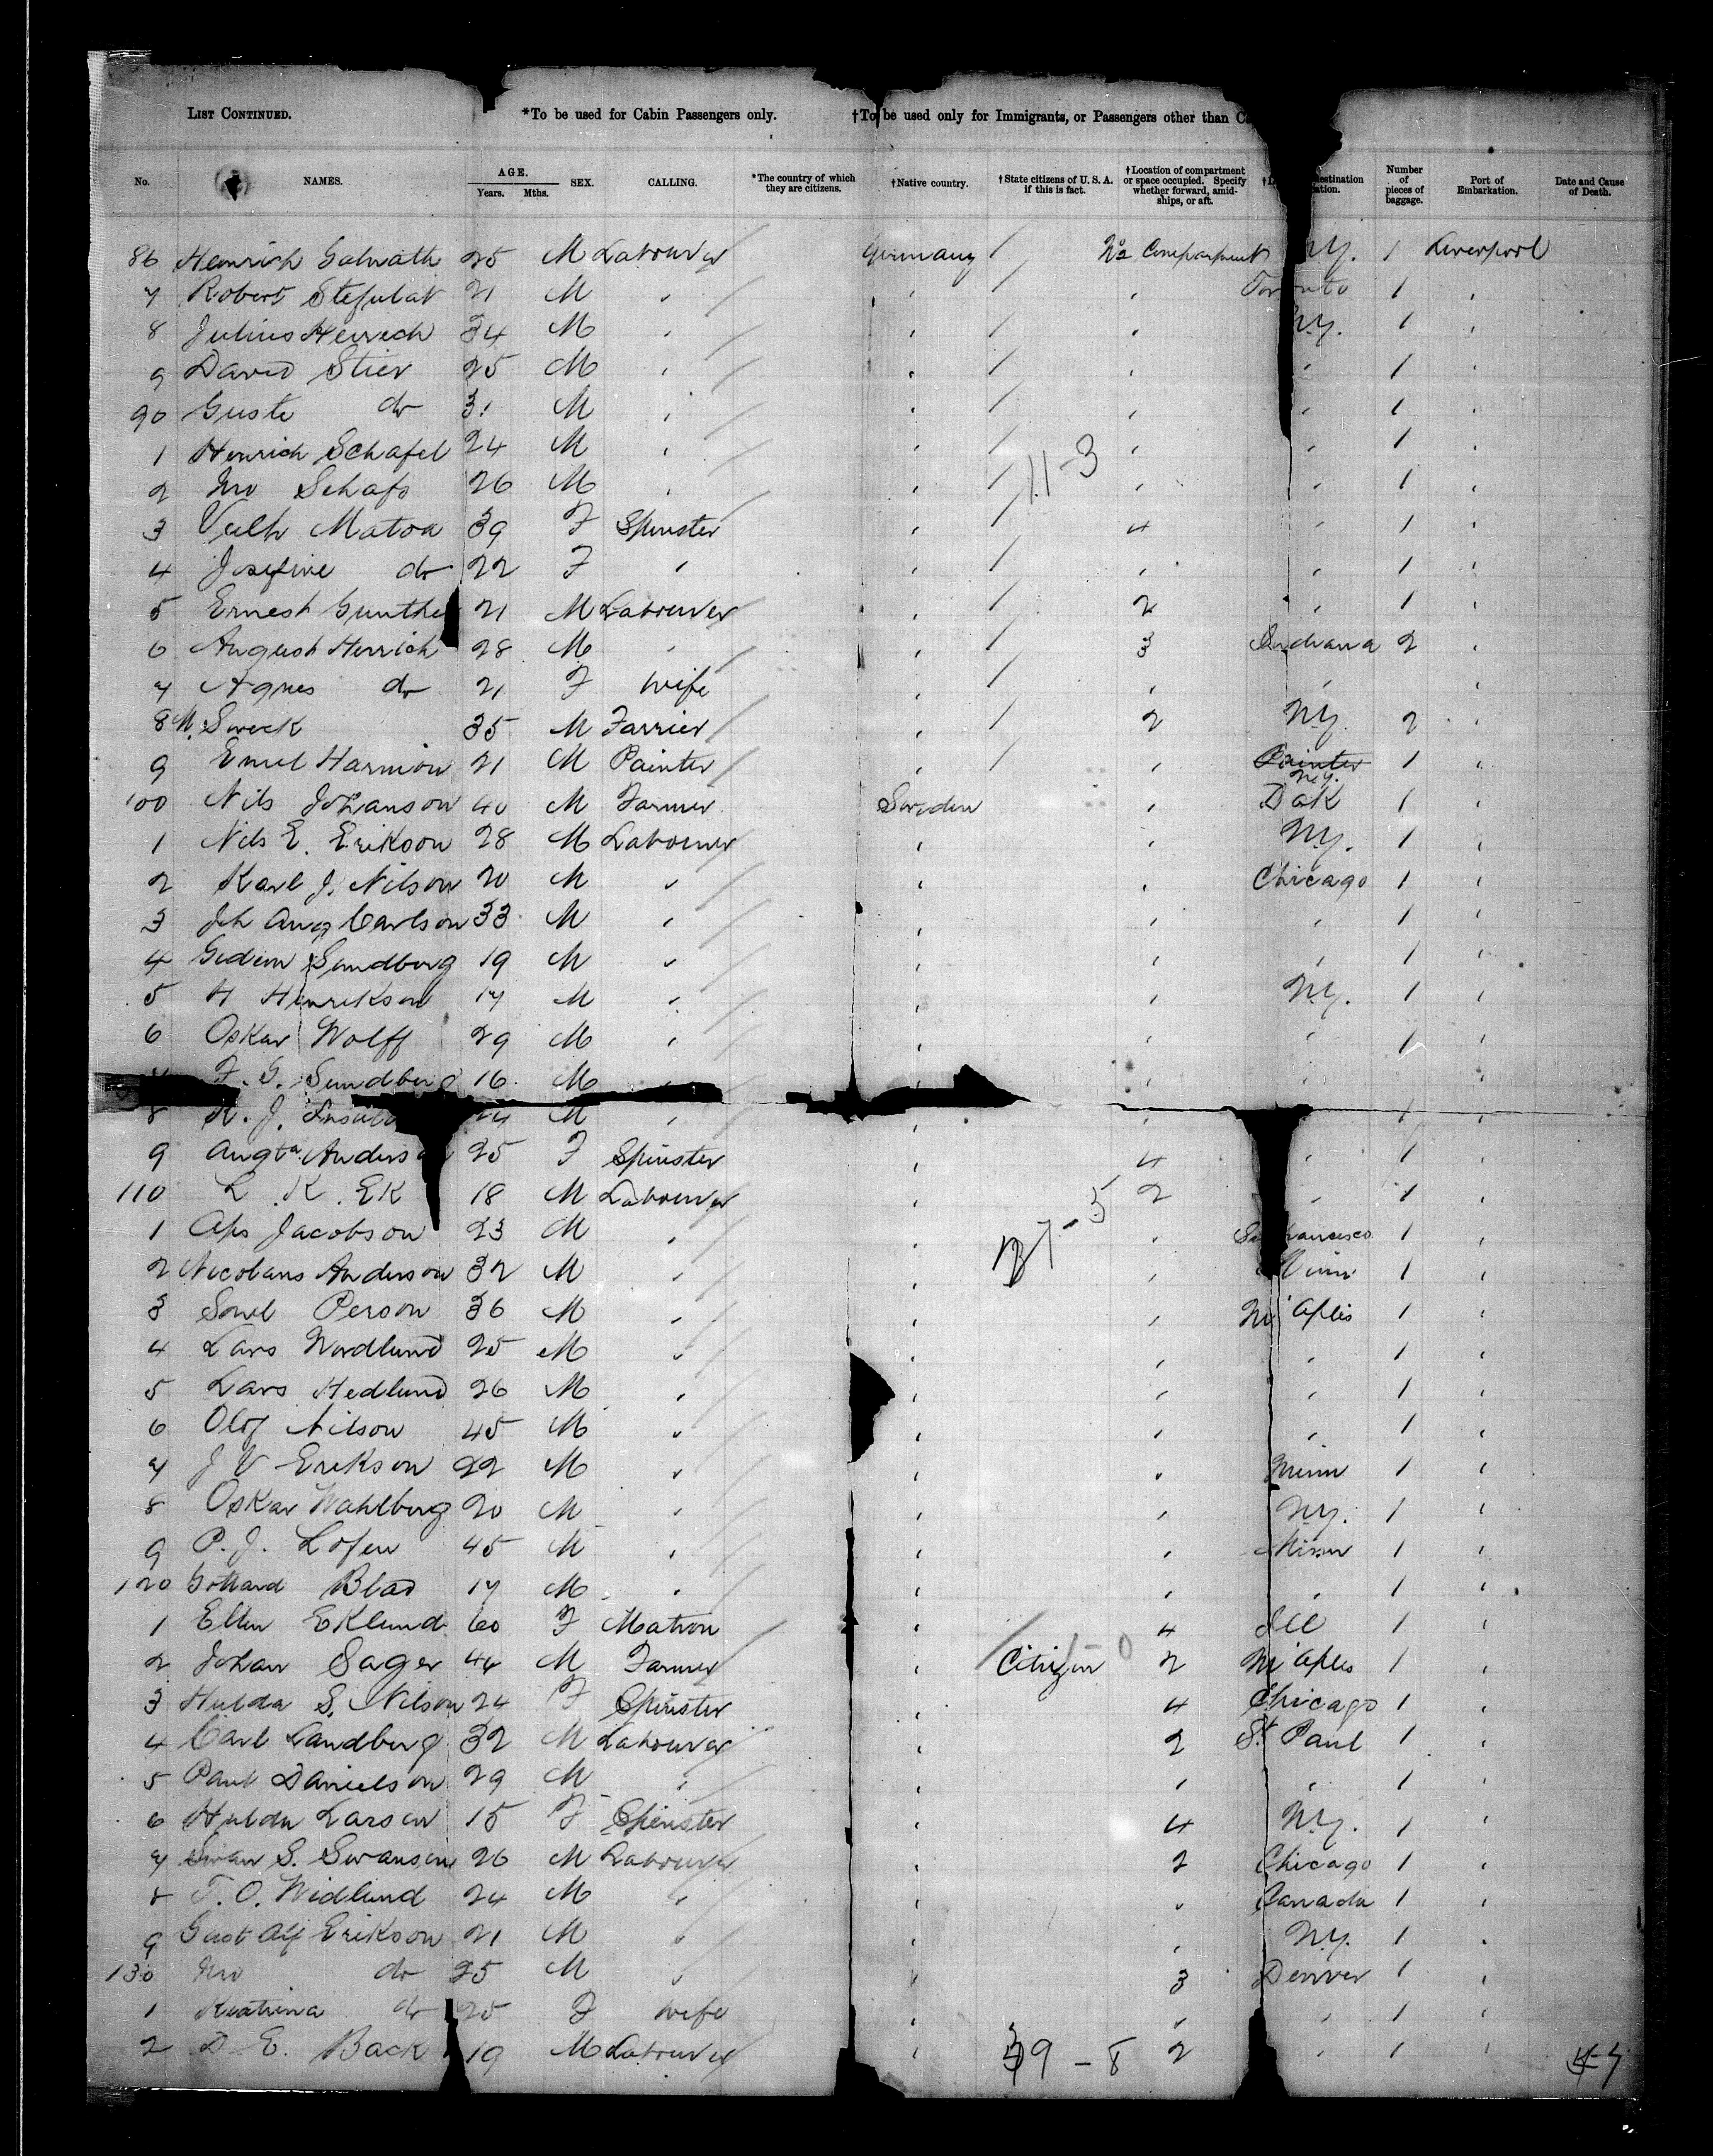 LIST CONTINUED. *To be used for Cabin Passengers only. †To be used only for Immigrants, or Passengers other than
No. NAMES. AGE. Years. Mths. SEX. CALLING. *The country of which they are citizens. †Native country. †State citizens of U. S. A. if this is fact. †Location of compartment or space occupied. Specify whether forward, amidships, or aft. Number of pieces of baggage. Port of Embarkation. Date and Cause of Death.
86 Henrich 25 M Labourer Germany / No 2 Compartment N.Y. 1 Liverpool
7 Robert 21 M " " / " Toronto 1 "
8 Julius 34 M " " / " N.Y. 1 "
9 David Stier 25 M " " / " " 1 "
90 Guste do 31 M " " / " " 1 "
1 Henrich Schafel 24 M " " / " " 1 "
2 Jno Schafs 26 M " " / " " 1 "
3 Matoa 39 F Spinster " / 4 " 1 "
4 Josefine do 22 F " " / " " 1 "
5 Ernest Gunthe 21 M Labourer " / 2 " 1 "
6 August Herrich 28 M " " / 3 Indiana 2 "
7 Agnes do 21 F Wife " / " " "
8 M. 35 M Farrier " / 2 N.Y. 2 "
9 Emel Harmion 21 M Painter " / " Painter N.Y. 1 "
100 Nils Johanson 40 M Farmer Sweden " Dak 1 "
1 Nils E. Erikson 28 M Labourer " " N.Y. 1 "
2 Karl J. Nilson 20 M " " " Chicago 1 "
3 Joh Aug Carlson 33 M " " " " 1 "
4 Gideon Sundberg 19 M " " " " 1 "
5 H Henrikson 17 M " " " N.Y. 1 "
6 Oskar Wolff 29 M " " " " 1 "
7 F. G. Sundberg 16 M " " " "
8 K. J. M " " " 1 "
9 Augta Anderson 25 F Spinster " 4 " 1 "
110 L. K. Ek 18 M Labourer " 2 " 1 "
1 Jacobson 23 M " " " San Francisco 1 "
2 Nicolaus Anderson 32 M " " " Minn 1 "
3 Person 36 M " " " M'aplis 1 "
4 Lars Nordlund 25 M " " " " 1 "
5 Lars Hedlund 26 M " " " " 1 "
6 Olof Nilson 45 M " " " " 1 "
7 J V Erikson 22 M " " " Minn 1 "
8 Oskar Wahlberg 20 M " " " N.Y. 1 "
9 P. J. Lofen 45 M " " " Minn 1 "
120 Gottard Blad 17 M " " " " 1 "
1 Ellen Eklund 60 F Matron " 4 Ill 1 "
2 Johan Sager 44 M Farmer " Citizen 2 M'aplis 1 "
3 Hulda S. Nilson 24 F Spinster " 4 Chicago 1 "
4 Carl Landberg 32 M Labourer " 2 St Paul 1 "
5 Paul Danielson 29 M " " " " 1 "
6 Hulda Larson 15 F Spinster " 4 N.Y. 1 "
7 Swan S. Swanson 26 M Labourer " 2 Chicago 1 "
8 T. O. Widlund 24 M " " " Canada 1 "
9 Gust Alf Erikson 21 M " " " N.Y. 1 "
130 Jno do 25 M " " 3 Denver 1 "
1 Katrina do 25 F Wife " " " 1 "
2 D. E. Back 19 M Labourer " 39 - 8 2 " 1 "